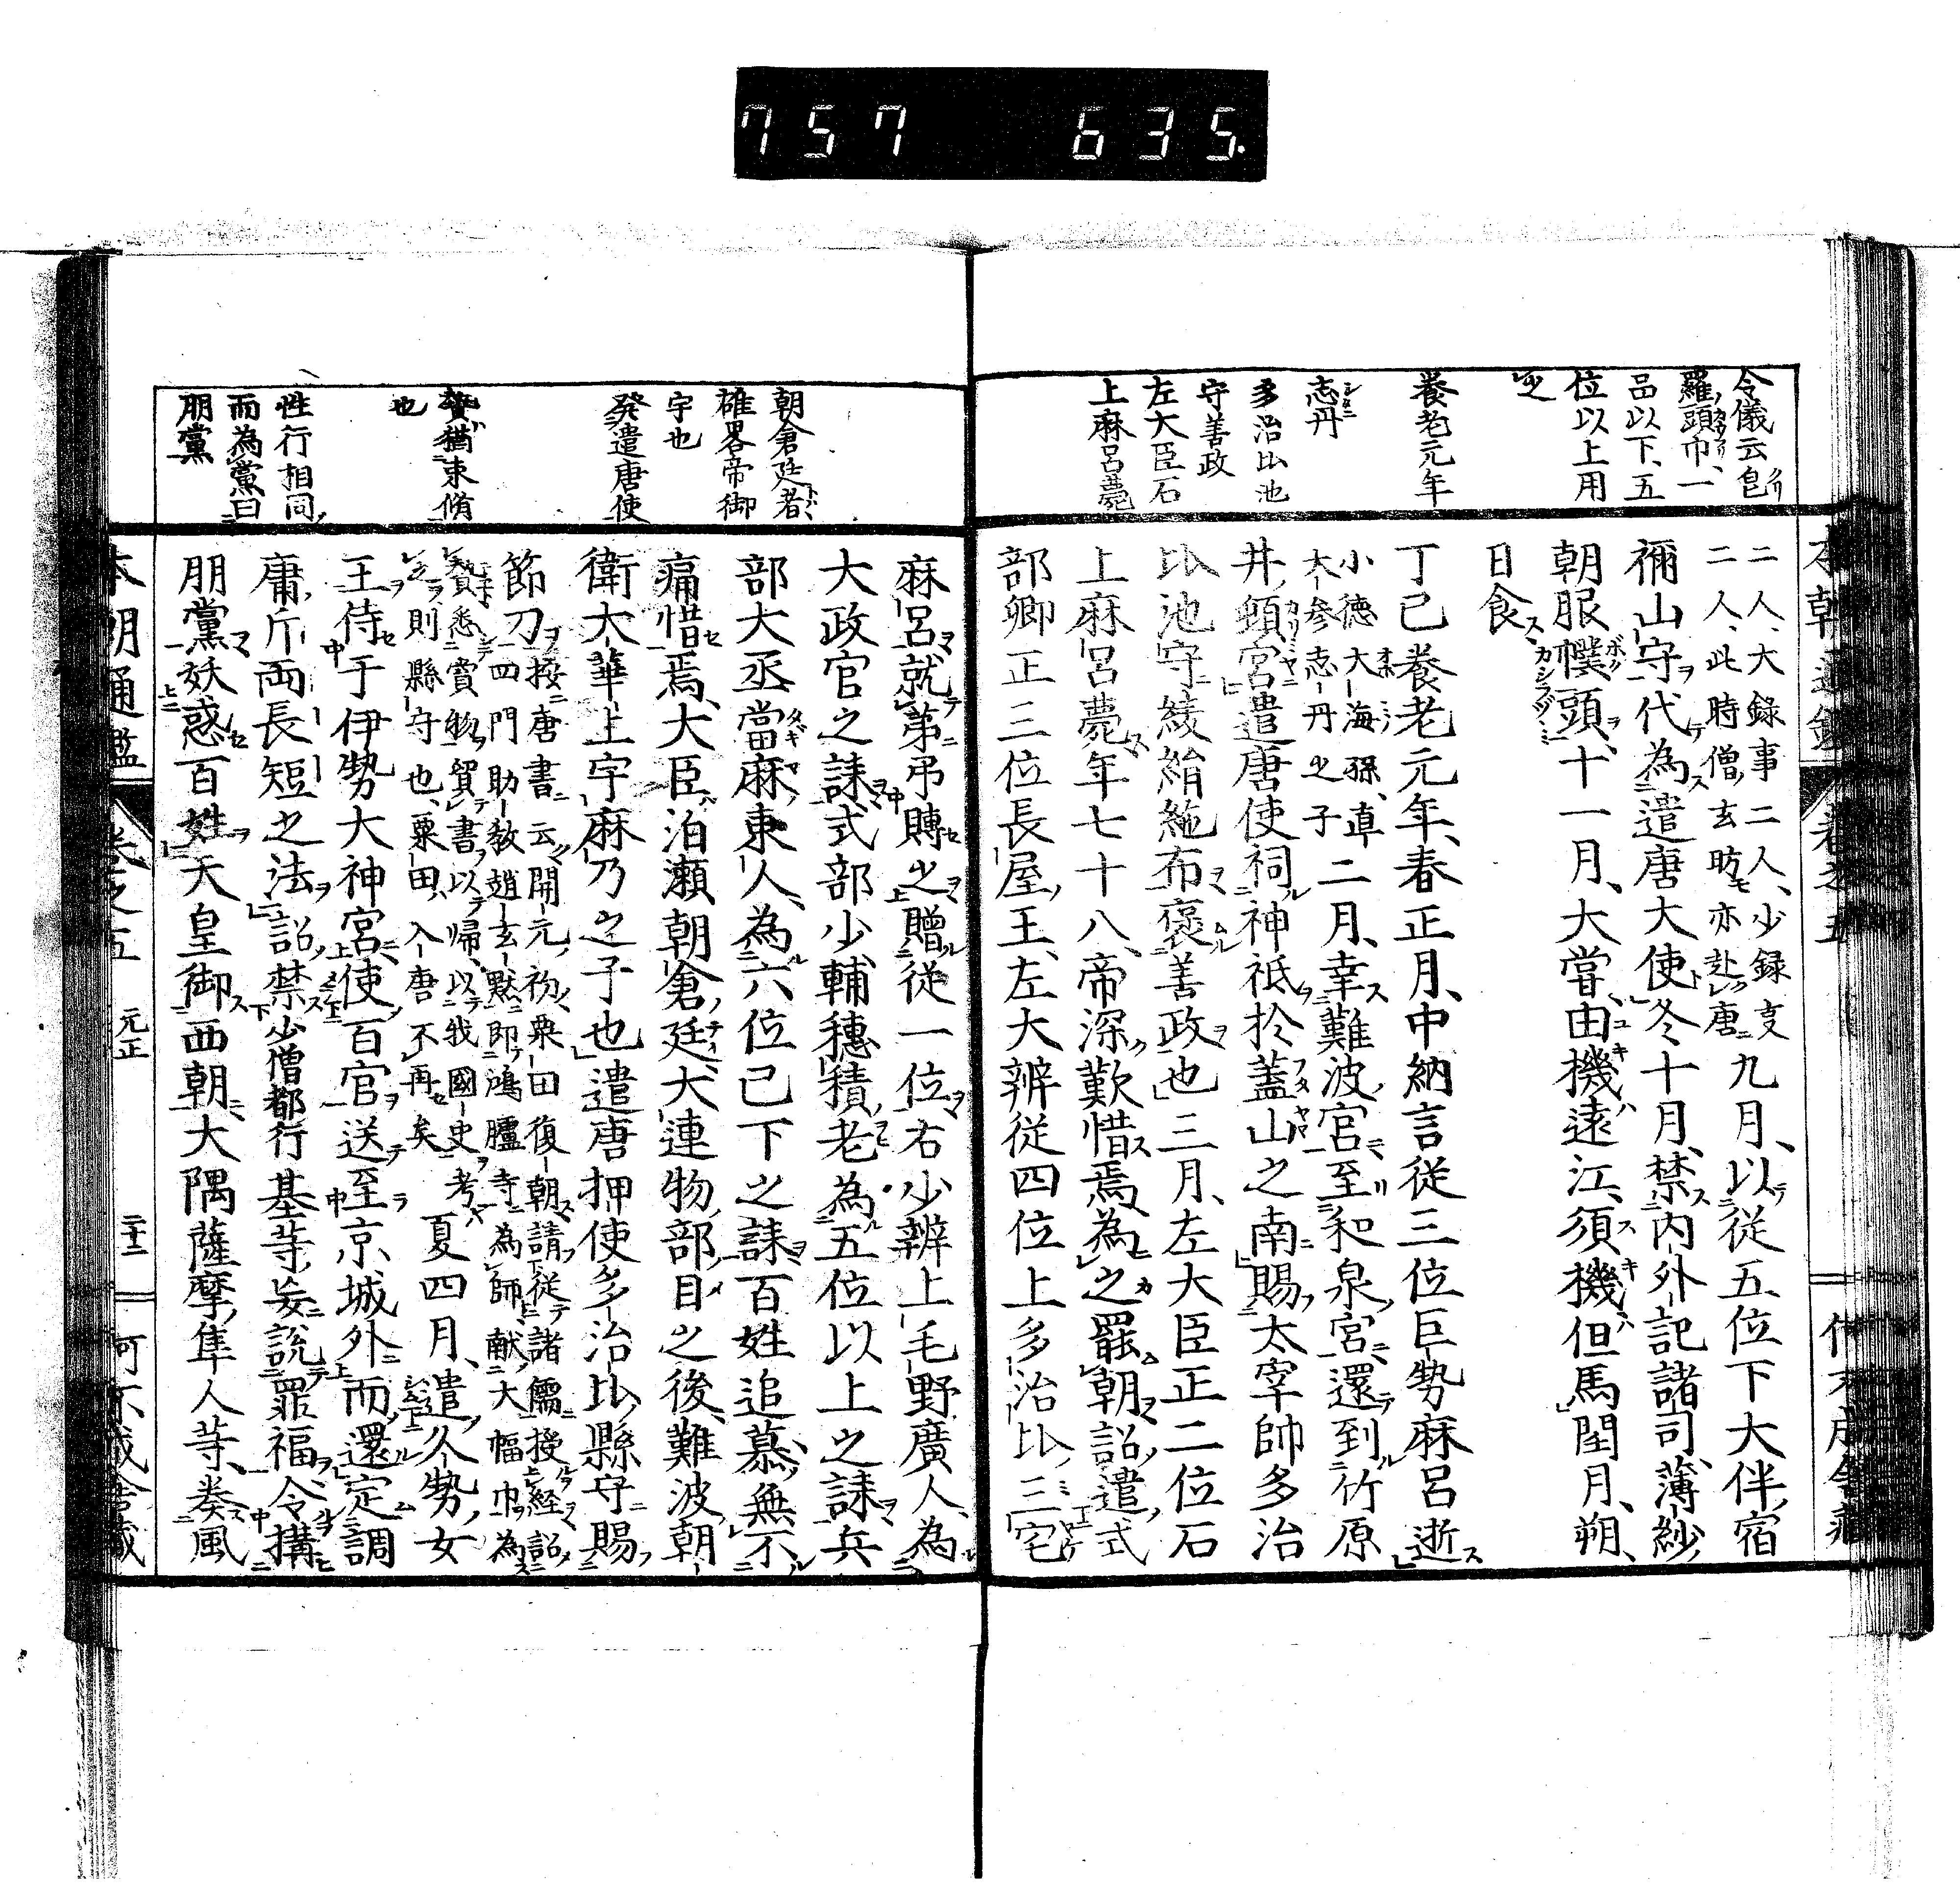 757 635
令儀云皀
羅頭巾、一
品以下、五
位以上用
之
養老元年
志丹
多治比池
守善政
左大臣石
上麻呂薨
二人、大録事二人、少録事
二人、此時僧玄昉亦赴唐
九月、以從五位下大伴宿
禰山守代為遣唐大使冬十月、禁内外記諸司、薄紗
朝服幞頭、十一月、大嘗、由機遠江、須機但馬閏月、朔、
日食
丁巳養老元年、春正月、中納言從三位巨勢麻呂逝
小德大海孫、直
大参志丹之子
二月、幸難波宮至和泉宮還到竹原
井頓宮遣唐使祠神祇於蓋山之南賜太宰帥多治
比池守綾絹絁布褒善政也三月、左大臣正二位石
上麻呂薨年七十八、帝深歎惜焉、為之罷朝詔遣式
部卿正三位長屋王、左大辨従四位上多治比三宅
朝倉廷者
雄畧帝御
宇也
発遣唐使
贄猶束脩
也
性行相同
而為黨曰
朋黨
麻呂就第弔賻之贈従一位右少辨上毛野廣人、為
大政官之誄式部少輔穗積老為五位以上之誄兵
部大丞當麻東人、為六位已下之誄百姓追慕、無不
痛惜焉、大臣泊瀬朝倉廷、大連物部目之後、難波朝
衛大華上宇麻乃之子也遣唐押使多治比縣守賜
節刀
按唐書云開元初粟田復朝請從諸儒授経詔
四門助教趙玄默即鴻臚寺為師献大幅巾為
贄悉賞物貿書以帰、以我國史考
之、則縣守也、粟田、入唐不再矣
夏四月、遣久勢女
王侍于伊勢大神宮使百官送至京城外而還定調
庸斤両長短之法詔禁少僧都行基等妄説罪福令搆
朋黨妖惑百姓天皇御西朝大隅薩摩隼人等奏風
本朝通鑑
卷之五
元正
二十二